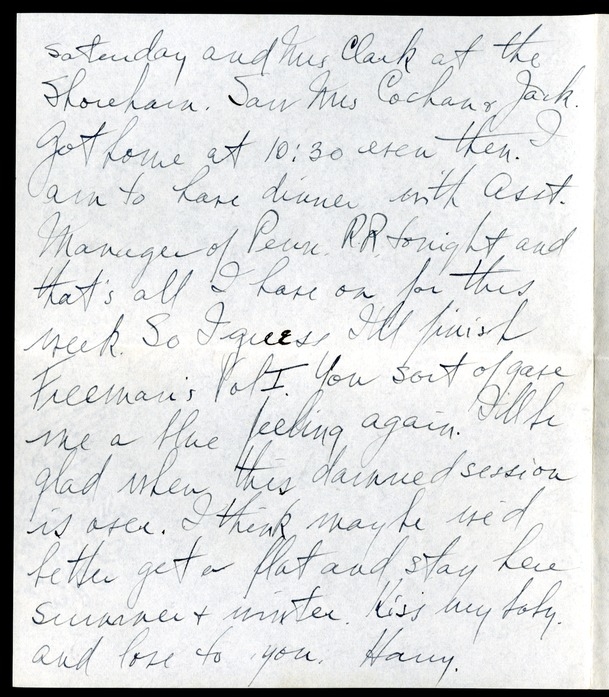 Saturday and Mrs Clark at the
Shoreham. Saw Mrs Cochran & Jack.
Got home at 10:30 even then. I
am to have dinner with Asst.
Manager of Penn. R.R. tonight and
that's all I have on for this
week. So I guess I'll finish
Freeman's Vol I. You sort of gave
me a blue feeling again. I'll be
glad when this damned session
is over. I think maybe we'd
better get a flat and stay here
summer & winter. Kiss my baby.
and love to you. Harry.